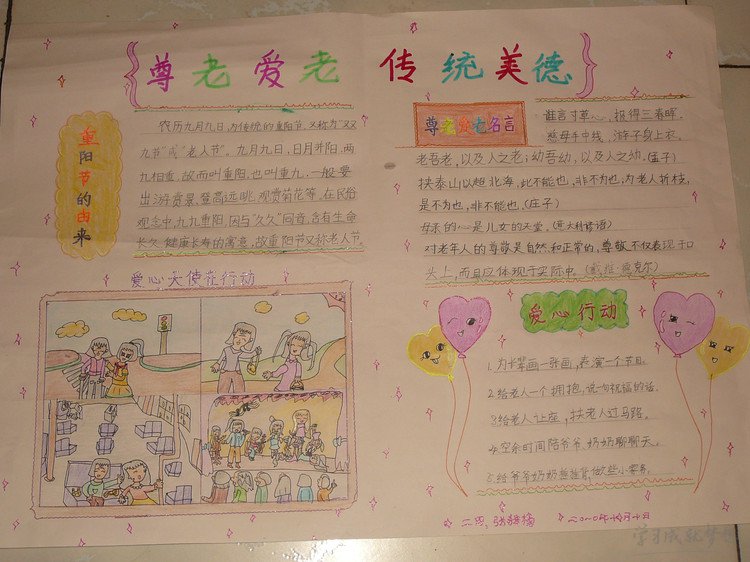 尊老爱老 传统美德
重阳节的由来
农历九月九日,为传统的重阳节,又称为"双
九节"或"老人节"。九月九日,日月并阳,两
九相重,故而叫重阳,也叫重九。一般要
出游赏景、登高远眺、观赏菊花等,在民俗
观念中,九九重阳,因与"久久"同音,含有生命
长久、健康长寿的寓意,故重阳节又称老人节。
爱心天使在行动
尊老爱老名言
谁言寸草心,报得三春晖.
慈母手中线,游子身上衣.
老吾老,以及人之老;幼吾幼,以及人之幼.(孟子)
挟泰山以超北海,此不能也,非不为也,为老人折枝,
是不为也,非不能也.(孟子)
母亲的心是儿女的天堂.(意大利谚语)
对老年人的尊敬是自然和正常的,尊敬不仅表现于口
头上,而且应体现于实际中。(戴维 德克尔)
爱心行动
1.为长辈画一张画,表演一个节目.
2.给老人一个拥抱,说句祝福的话.
3.给老人让座,扶老人过马路.
4.空余时间陪爷爷、奶奶聊聊天.
5.给爷爷奶奶捶捶背,做些小家务.
二〇一〇年十月十日
学习成就梦